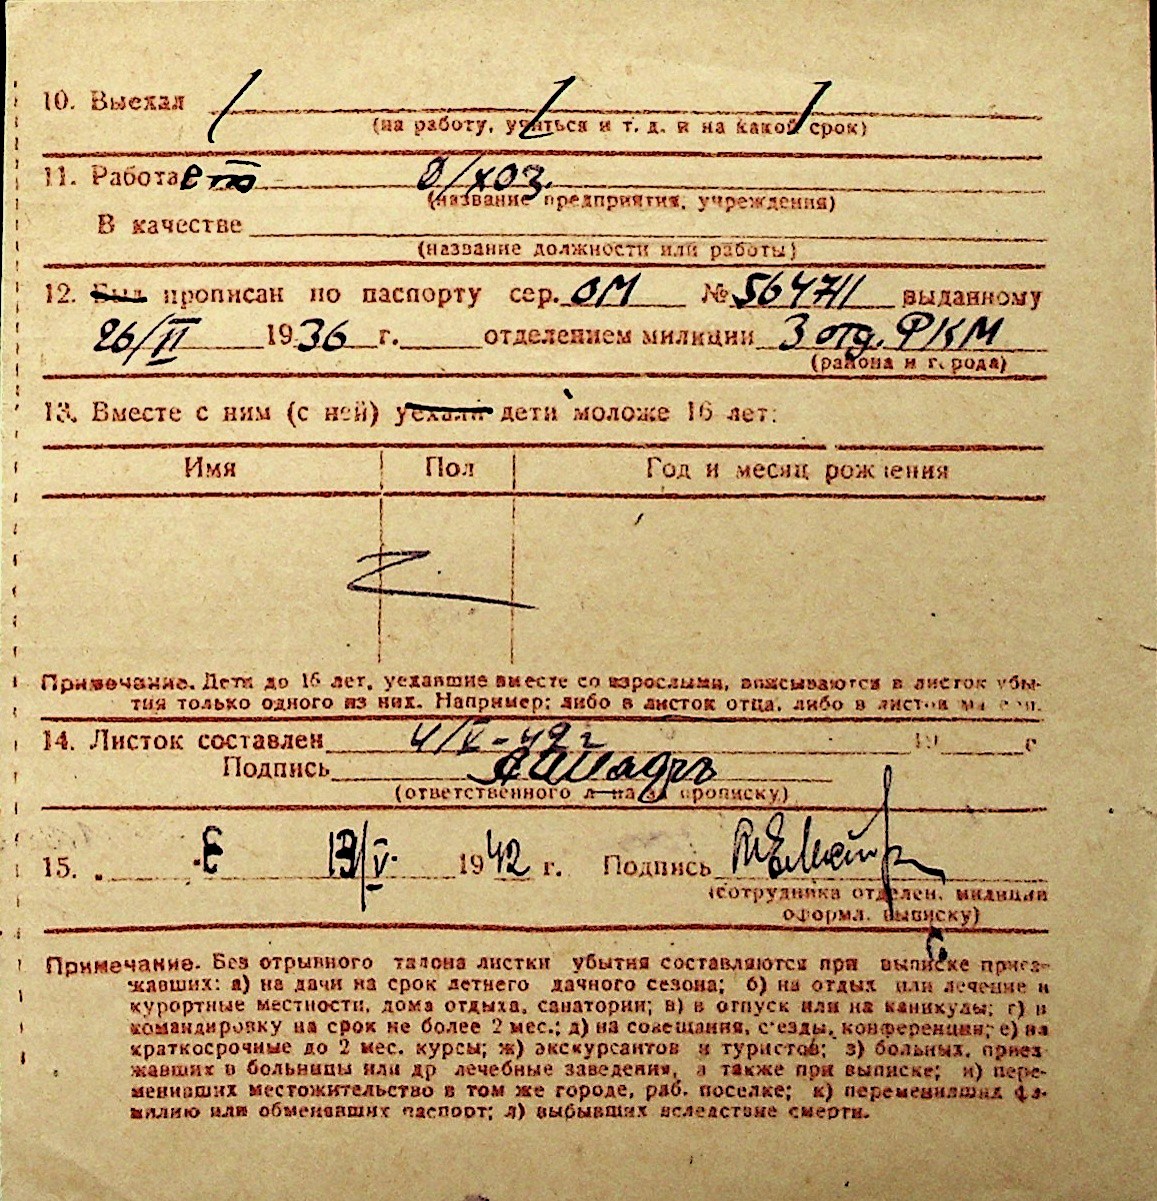 10. Выехал
(на работу, учиться и т. д. и на какой срок)
11. Работает д/хоз.
(название предприятия, учреждения)
В качестве
(название должности или работы)
12. Был прописан по паспорту сер. ОМ № 564711 выданному
26/VI 1936 г. отделением милиции 3 отд. РКМ
(района и города)
13. Вместе с ним (с ней) уехали дети моложе 16 лет:
Имя Пол Год и месяц рождения
Примечание. Дети до 16 лет, уехавшие вместе со взрослыми, вписываются в листок убы-
тия только одного из них. Например: либо в листок отца, либо в листок матери.
14. Листок составлен 4/V-42 г 19 г
Подпись
(ответственного лица за прописку)
15. 13/V. 1942 г. Подпись
(сотрудника отделен. милиции
оформл. выписку)
Примечание. Без отрывного талона листки убытия составляются при выписке приез-
жавших: а) на дачи на срок летнего дачного сезона; б) на отдых или лечение в
курортные местности, дома отдыха, санатории; в) в отпуск или на каникулы; г) в
командировку на срок не более 2 мес.; д) на совещания, с'езды, конференции; е) на
краткосрочные до 2 мес. курсы; ж) экскурсантов и туристов; з) больных, приез-
жавших в больницы или др лечебные заведения, а также при выписке; и) пере-
менивших местожительство в том же городе, раб. поселке; к) переменивших фа-
милию или обменявших паспорт; л) выбывших вследствие смерти.